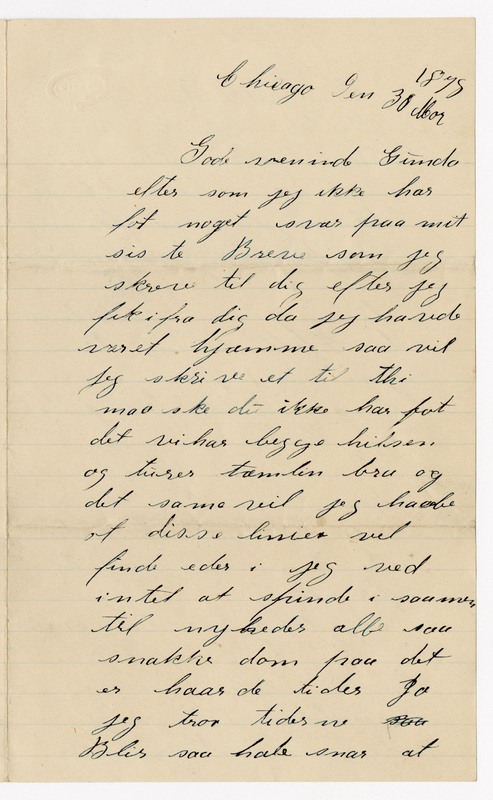 Chicago Den 30 Mar 1898
Gode veninde Gunda
efter som jeg ikke har
fot noget svar paa mit
sis te Breve som jeg
skreve til dig efter jeg
fik ifra dig da jeg havde
været hjæmme saa vil
jeg skrive et til thi
maa ske du ikke har fot
det vi har begge hilsen
og turer tæmlin bra og
det samo veil jeg haabe
at disse linier vel
finde eder i jeg ved
intet at spinde i saamen
til nyheder alle saa
snakke dom paa det
er haarde tider Ja
jeg tror tiderne saa
Blir saa hale snar at